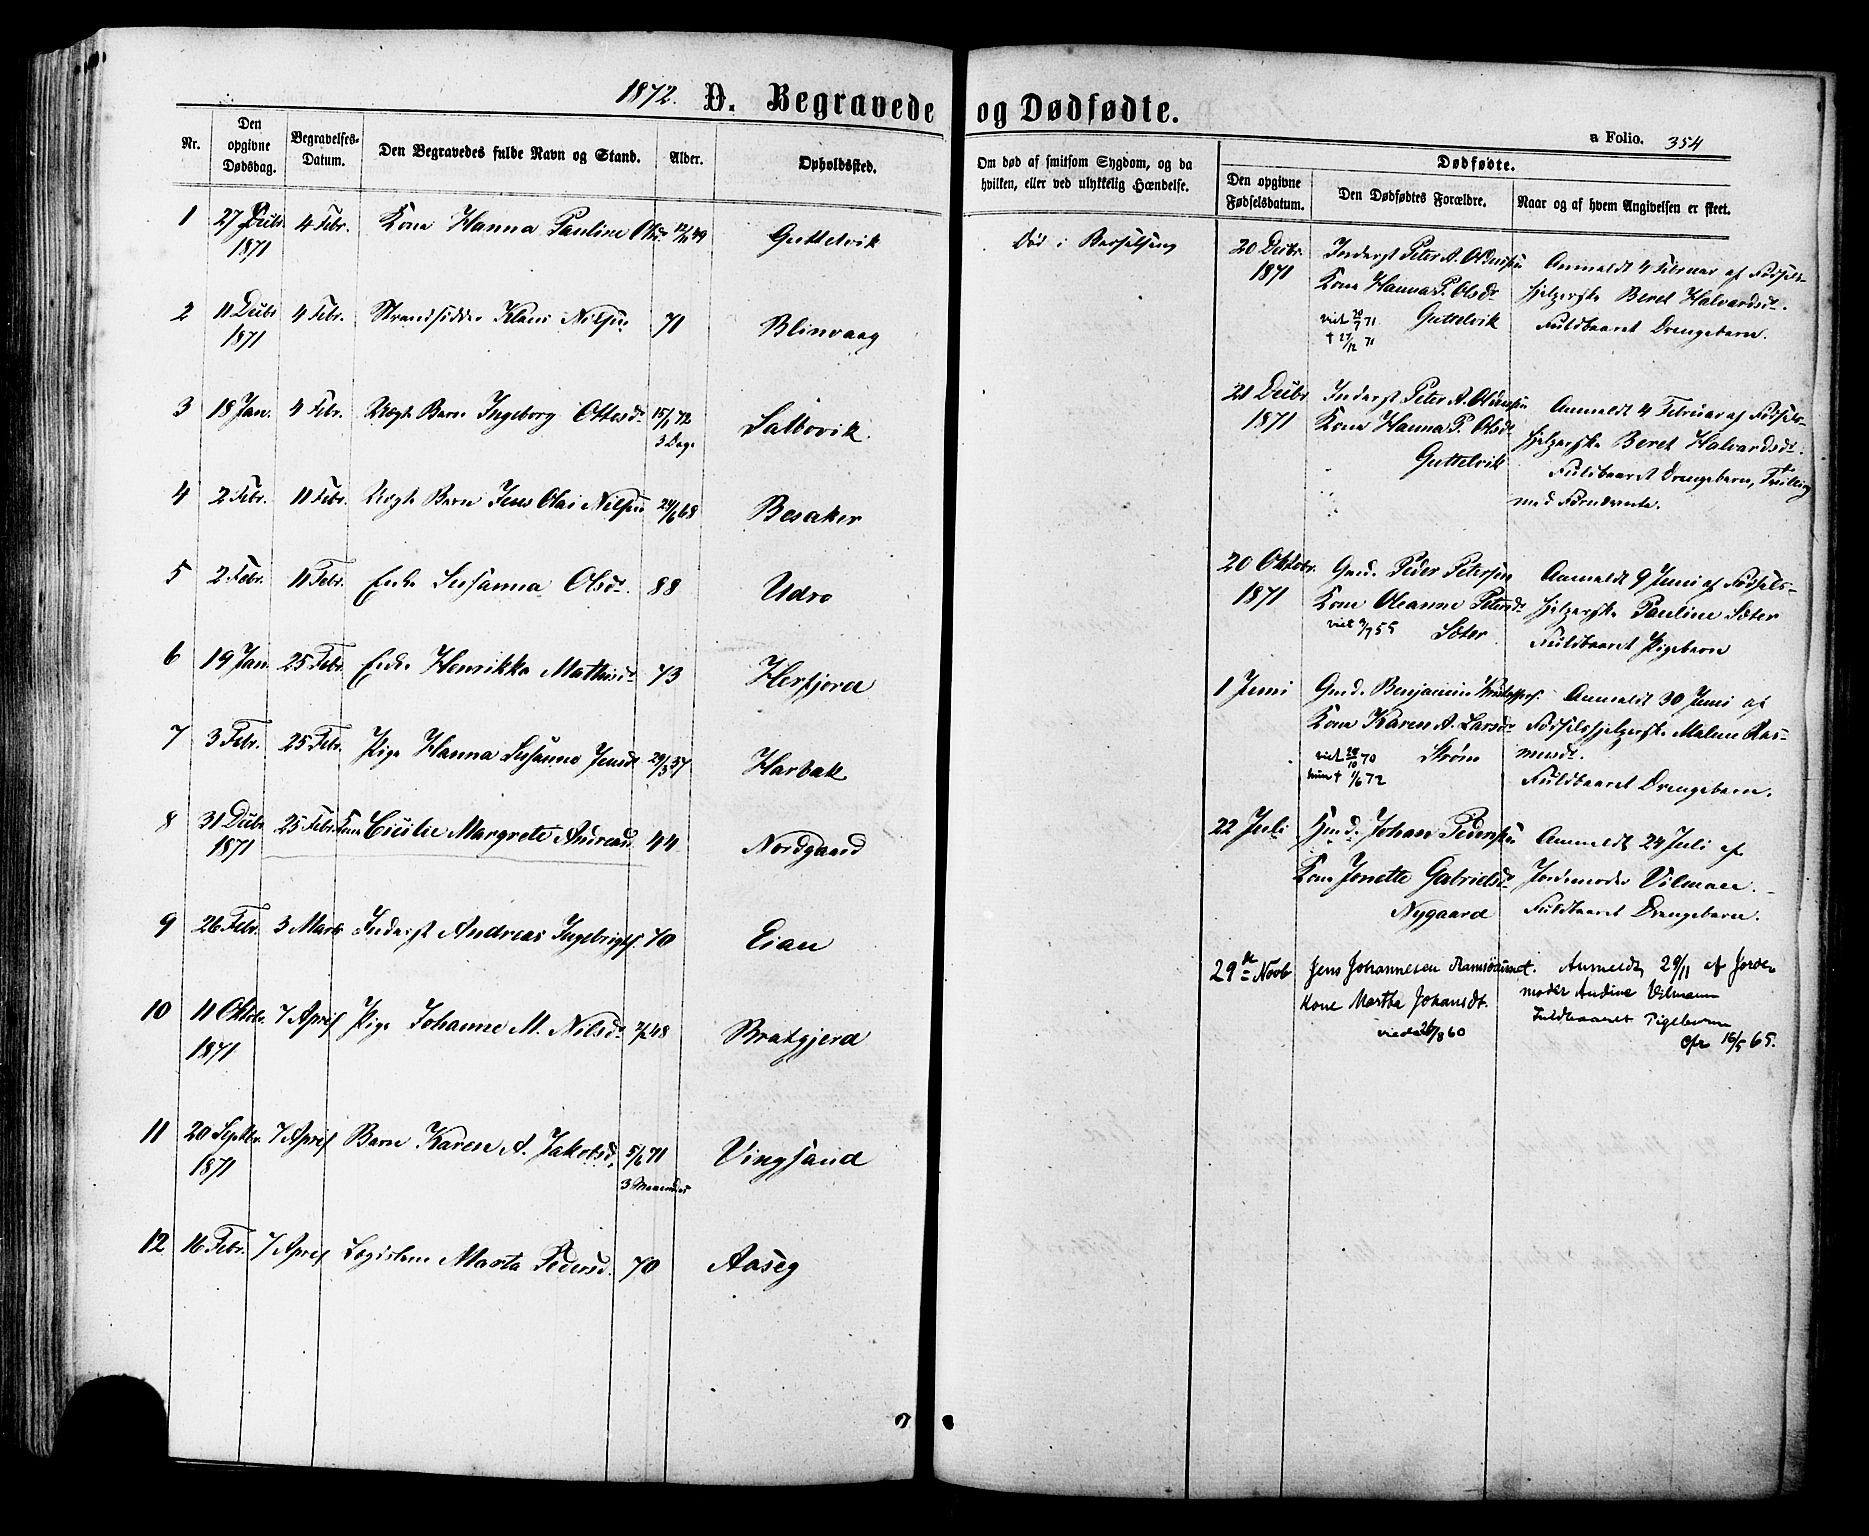 1872. D. Begravede og Dødfødte.
a Folio. 354
Nr. Den opgivne Dødsdag. Begravelses-Datum. Den Begravedes fulde Navn og Stand. Alder. Opholdssted.
Om død af smitsom Sygdom, og da hvilken, eller ved ulykkelig Hændelse.
Dødfødte.
Den opgivne Fødselsdatum. Den Dødfødtes Forældre. Naar og af hvem Angivelsen er skeet.
1 27 Decbr. 1871 4 Febr. Kone Hanna Pauline Olsd. 12/11 49 Guttelvik Død i Barselseng
2 11 Decbr 1871 4 Febr. Strandsidder Klaus Nilsen 71 Blinvaag
3 18 Jan. 4 Febr. Uægte Barn Ingeborg Ottesdt 15/1 72 3 Dage Salbovik.
4 2 Febr. 11 Febr. Uægte Barn Jens Olai Nilsen 24/6 68 Besaker
5 2 Febr. 11 Febr. Enke Susanna Olsdt. 88 Udro
6 19 Jan. 25 Febr. Enke Henrikka Mathisdt 73 Herfjord
7 3 Febr. 25 Febr. Pige Hanna Susanna Jensdt 29/5 57 Harbak
8 31 Decbr 1871 25 Febr. Kone Cicilie Margrete Andreasd 44 Nordgaard
9 26 Febr. 3 Marts Inderst Andreas Ingebrigts. 70 Eian
10 11 Oktobr. 1871 7 April Pige Johanne M. Nilsdt 48 Bratgjerd
11 20 Septbr. 1871 7 April Barn Karen A. Jakobsd. 5/6 71 3 Maaneder Vingsand
12 16 Febr. 7 April Lægdslem Marta Pedersd. 70 Aaseg
20 Decbr 1871 Inderst Peter A. Oldensen
Kone Hanna P. Olsdt
viet 20/7 71 Guttelvik
† 27/12 71
Anmeldt 4 Februar af Fødsels-
hjelperske Beret Halvardsdt.
Fuldbaaret Drengebarn.
21 Decbr 1871 Inderst Peter A. Oldensen
Kone Hanna P. Olsdt
Guttelvik
Anmeldt 4 Februar af Fødsels-
hjelperske Beret Halvardsdt.
Fuldbaaret Drengebarn, Tvilling
med Foranstaaende.
20 Oktobr. 1871 Gmd. Peder Petersen
Kone Oleanna Petersdt
viet 9/7 55 Sæter
Anmeldt 9 Juni af Fødsels-
hjelperske Pauline Sæter
Fuldbaaret Pigebarn
1 Juni Gmd. Benjamin Kristoffers.
Kone Karen A. Larsdt
viet 28/10 70 Strøm
hun † 1/6 72
Anmeldt 30 Juni af
Fødselshjelperske Malene Ras-
musdt.
Fuldbaaret Drengebarn.
22 Juli Gmd. Johan Pedersen
Kone Jonette Gabrielsdt
Nygaard
Anmeldt 24 Juli af
Jordemoder Vilmann.
Fuldbaaret Drengebarn.
29de Novb Jens Johannesen
Kone Martha Johansdt.
viede 26/8 60
Anmeldt 29/11 af Jorde-
moder Andine Vilmann
Fuldbaaret Pigebarn
cfr 16/5 65.